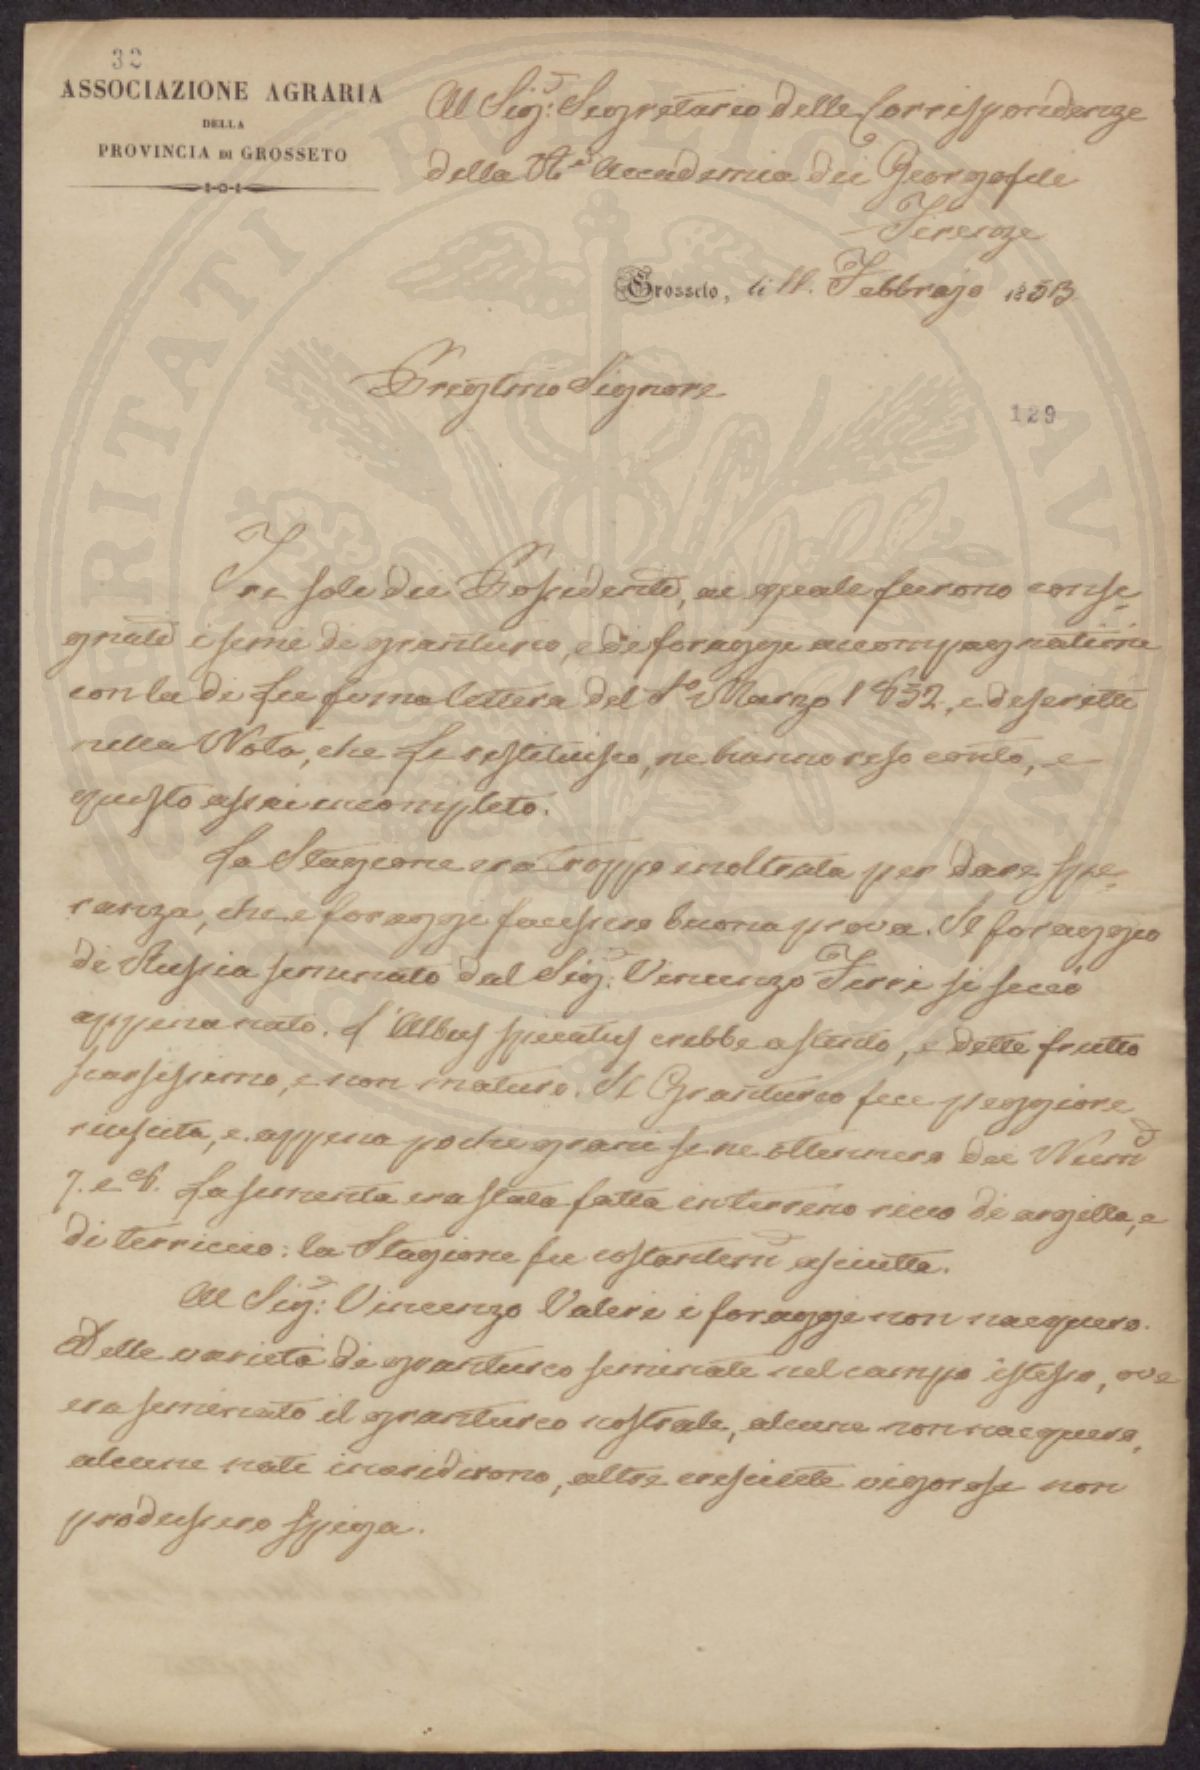 32
ASSOCIAZIONE AGRARIA
DELLA
PROVINCIA DI GROSSETO
Al Sigr: Segretario delle Corrispondenze
della Rle Accademia dei Georgofili
Firenze
Grosseto, li 11. Febbrajo 1853
Pregtmo Signore
129
Tre soli dei Possidenti, ai quali furono conse-
gnati i semi di granturco, e di foraggi accompagnatimi
con la di Lei pma lettera del Marzo 1852, e descritti
nella Nota, che Le restituisco, ne hanno reso conto, e
questo assai incompleto.
La Stagione era troppo inoltrata per dare spe-
ranza, che i foraggi facessero buona prova. Il foraggio
di Russia seminato dal Sigr: Vincenzo Ferri si seccò
appena nato. L'Albus spicatus crebbe a stento, e dette frutto
scarsissimo, e non maturo. Il Granturco fece peggiore
riuscita, e appena pochi grani se ne ottennero dei Numi
7. e 8. La sementa era stata fatta in terreno ricco di argilla, e
di terriccio: la Stagione fu costantemte asciutta.
Al Sigr: Vincenzo Valeri i foraggi non nacquero.
Delle varietà di granturco seminate nel campo istesso, ove
era seminato il granturco nostrale, alcune non nacquero,
alcune nate inaridirono, altre cresciute vigorose non
produssero spiga.